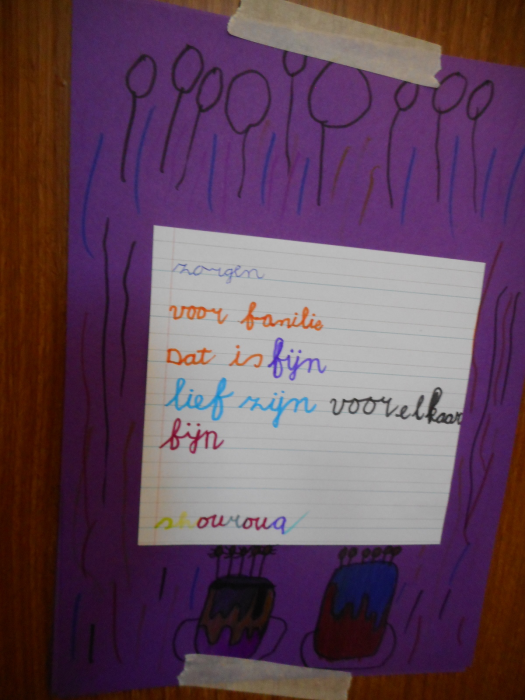 zorgen
voor familie
Dat is fijn
lief zijn voor elkaar
fijn
shouroua